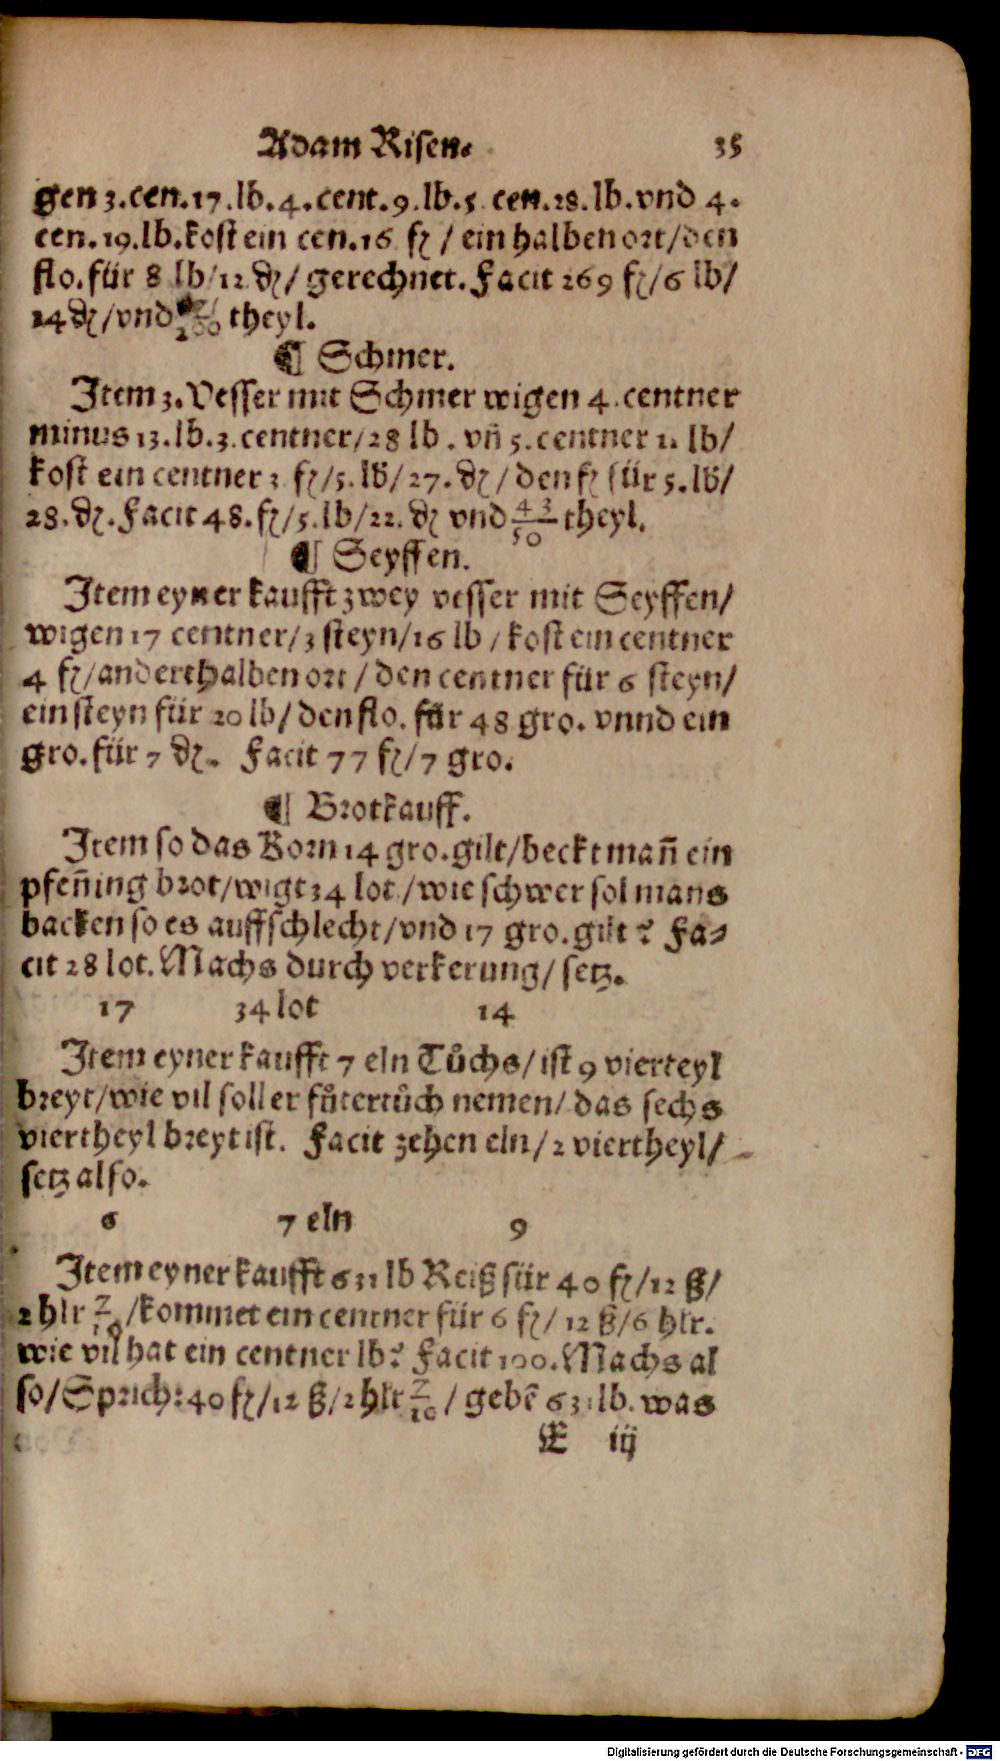 Adam Risen. 35
gen 3.cen.17.lb.4.cent.9.lb.5 cen.28.lb.vnd 4.
cen.19.lb.kost ein cen.16 fl / ein halben ort/den
flo.für 8 lb/12 ₰/ gerechnet. Facit 269 fl/6 lb/
24 ₰/vnd theyl.
¶ Schmer.
Item 3. Vesser mit Schmer wigen 4.centner
minus 13.lb.3.centner/28 lb. vñ 5.centner 11 lb/
kost ein centner 3 fl/5.lb/27.₰/ den fl für 5.lb/
28.₰.Facit 48.fl/5.lb/22.₰ vnd 43/50 theyl.
¶ Seyffen.
Item eyner kaufft zwey vesser mit Seyffen/
wigen 17 centner/3 steyn/16 lb/kost ein centner
4 fl/anderthalben ort/den centner für 6 steyn/
ein steyn für 20 lb/den flo. für 48 gro. vnnd ein
gro.für 7 ₰. Facit 77 fl/7 gro.
¶ Brotkauff.
Item so das Korn 14 gro.gilt/beckt mañ ein
pfeñing brot/wigt 34 lot/wie schwer sol mans
backen so es auffschlecht/vnd 17 gro.gilt? Fa⸗
cit 28 lot.Machs durch verkerung/setz.
17 34 lot 14
Item eyner kaufft 7 eln Tůchs/ist 9 vierteyl
breyt/wie vil soll er fůtertůch nemen/das sechs
viertheyl breyt ist. Facit zehen eln/2 viertheyl/
setz also.
6 7 eln 9
Item eyner kaufft 631 lb Reiß für 40 fl/12 ß/
2 hlr 7/10/kommet ein centner für 6 fl/12 ß/6 hlr.
wie vil hat ein centner lb? Facit 100.Machs al
so/Sprich:40 fl/12 ß/2 hlr 7/10/gebẽ 631 lb. was
E iij
Digitalisierung gefördert durch die Deutsche Forschungsgemeinschaft - DFG